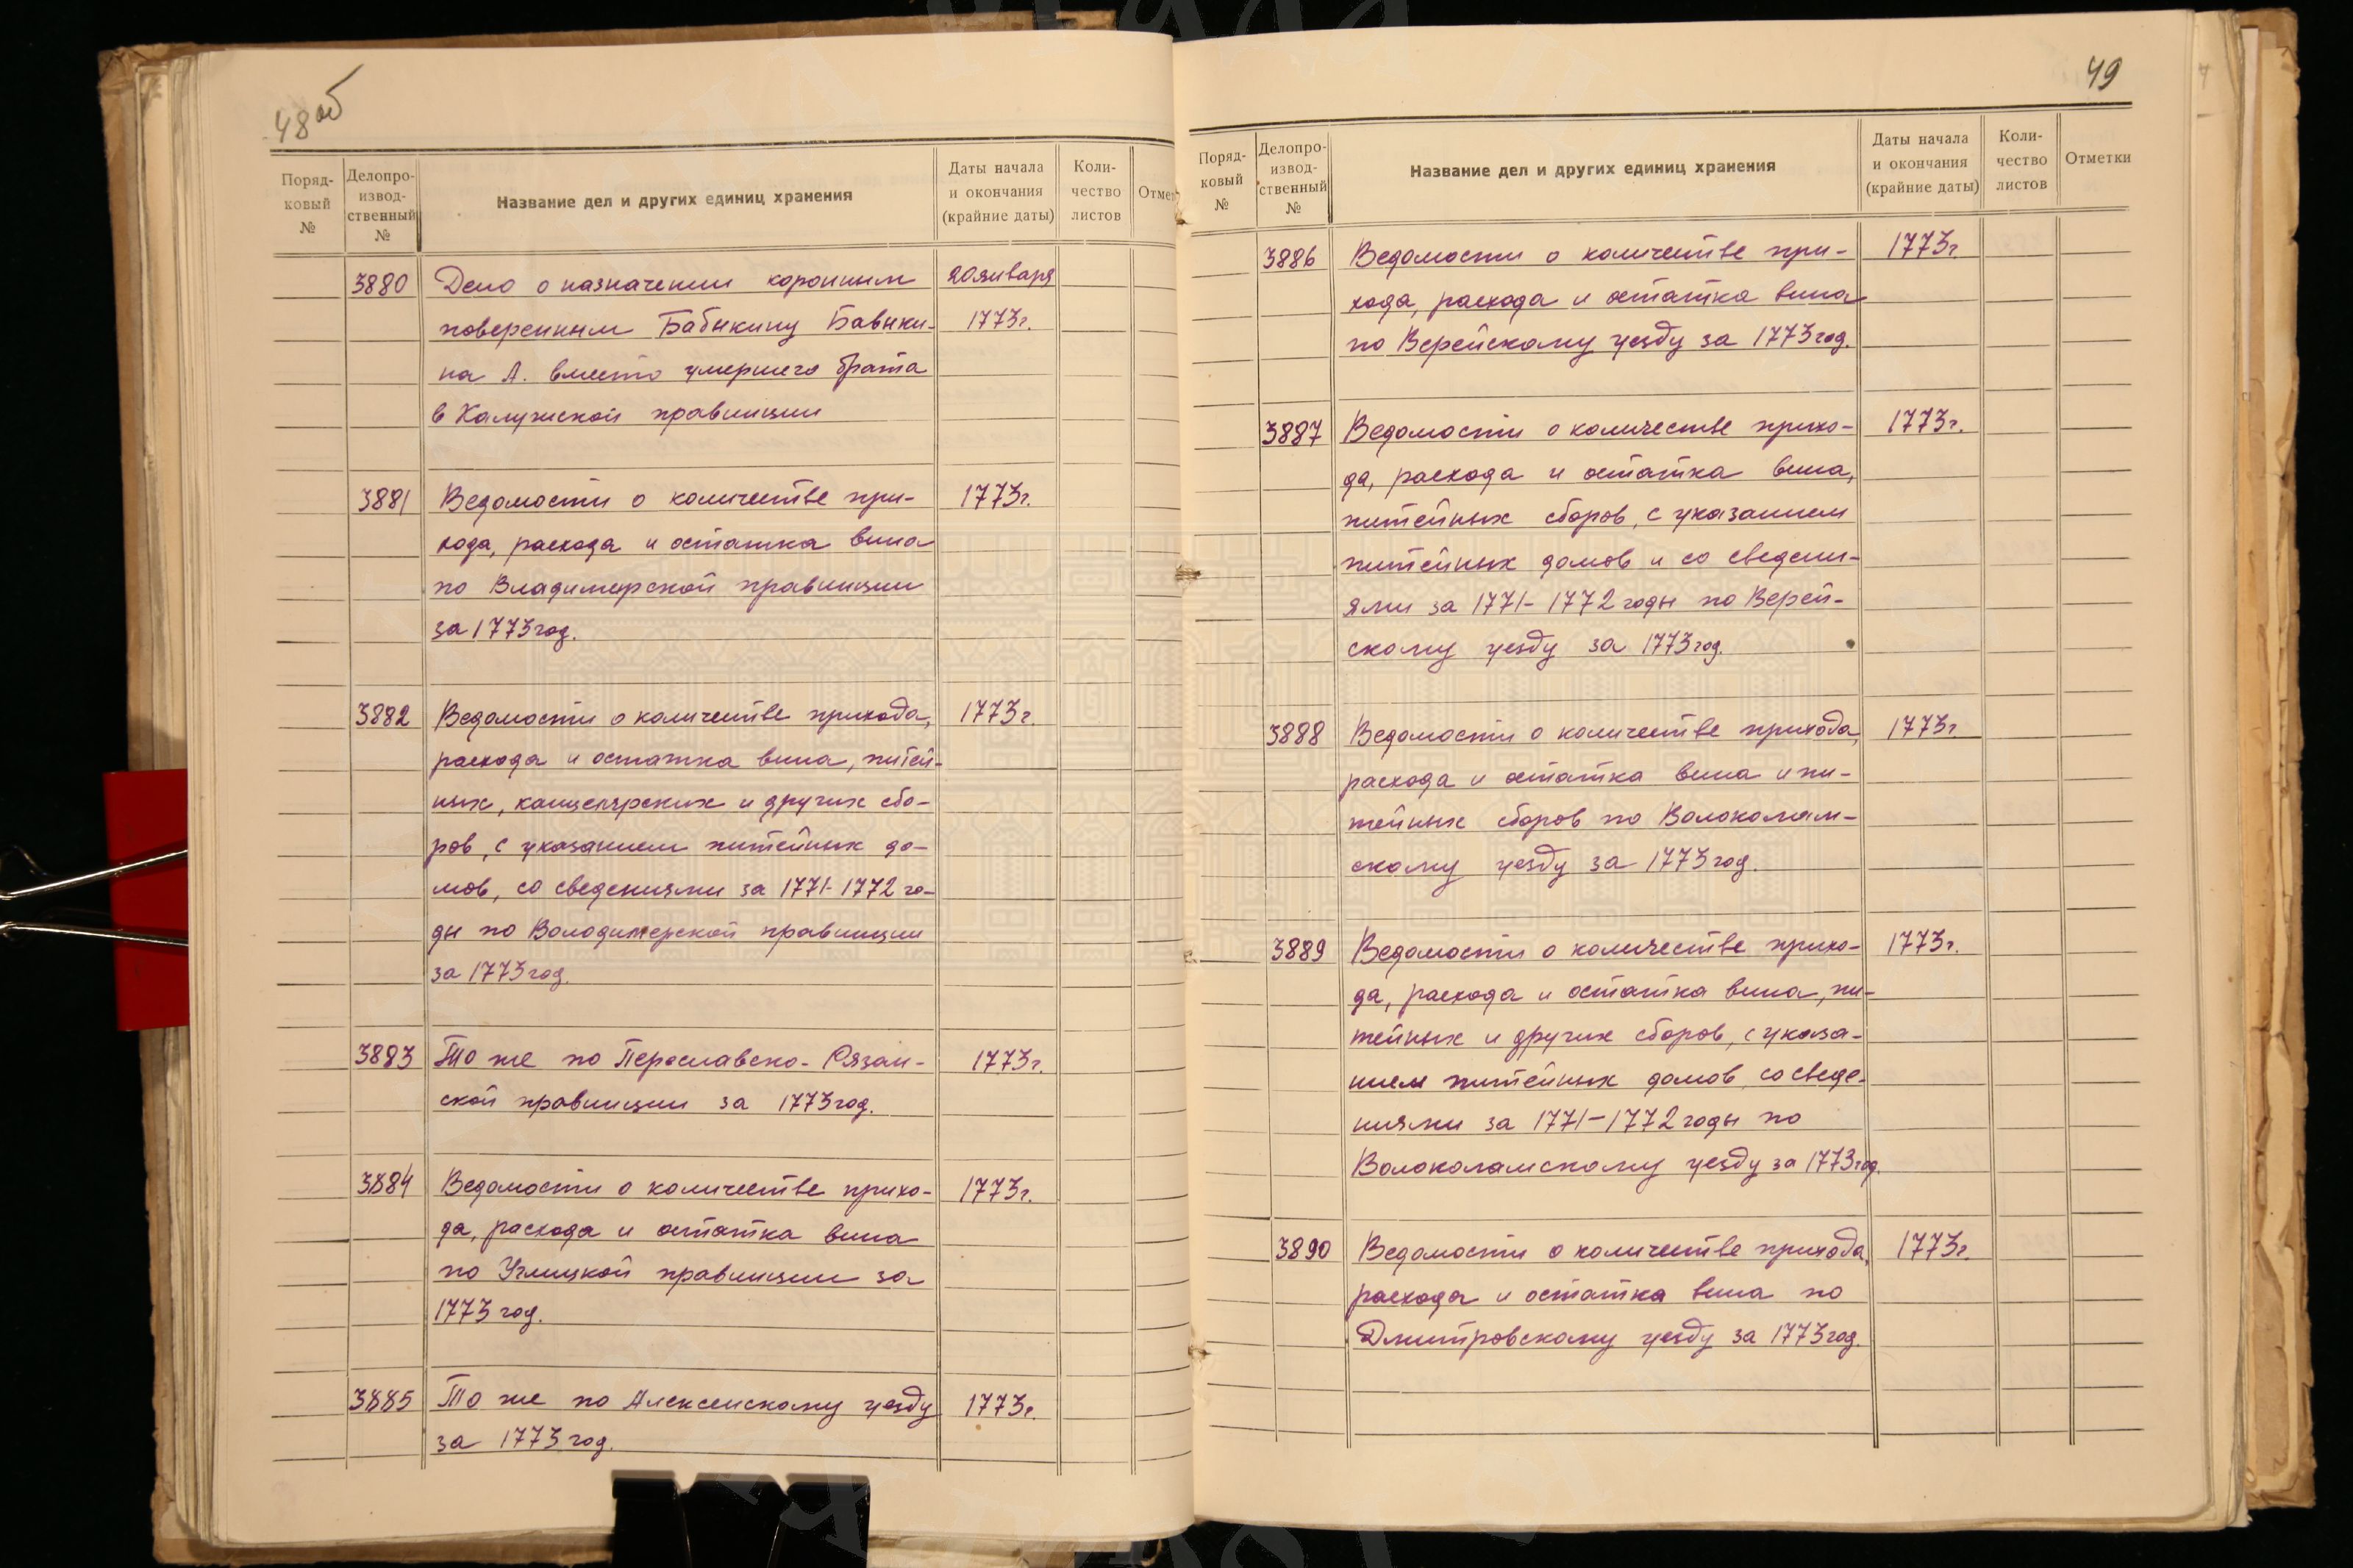 48об
Поряд-
ковый
№
Делопро-
извод-
ственный
№
Название дел и других единиц хранения
Даты начала
и окончания
(крайние даты)
Коли-
чество
листов
Отмет
3880 Дело о назначении коронным 20 января
поверенным Бабыкину Бавыки- 1773г.
на А. вместо умершего брата
в Калужской правинции
3881 Ведомости о количестве при- 1773г.
хода, расхода и остатка вина
по Владимирской правинции
за 1773 год.
3882 Ведомости о количестве прихода, 1773г.
расхода и остатка вина, питей-
ных, канцелярских и других сбо-
ров, с указанием питейных до-
мов, со сведениями за 1771-1772 го-
ды по Володимерской правинции
за 1773 год.
3883 То же по Переславско-Рязан- 1773г.
ской правинции за 1773 год.
3884 Ведомости о количестве прихо- 1773г.
да, расхода и остатка вина
по Углицкой правинции за
1773 год.
3885 То же по Алексенскому уезду 1773г.
за 1773 год.
49
Поряд-
ковый
№
Делопро-
извод-
ственный
№
Название дел и других единиц хранения
Даты начала
и окончания
(крайние даты)
Коли-
чество
листов
Отметки
3886 Ведомости о количестве при- 1773г.
хода, расхода и остатка вина
по Верейскому уезду за 1773 год.
3887 Ведомости о количестве прихо- 1773г.
да, расхода и остатка вина,
питейных сборов, с указанием
питейных домов и со сведени-
ями за 1771-1772 годы по Верей-
скому уезду за 1773 год.
3888 Ведомости о количестве прихода, 1773г.
расхода и остатка вина и пи-
тейных сборов по Волоколам-
скому уезду за 1773 год.
3889 Ведомости о количестве прихо- 1773г.
да, расхода и остатка вина, пи-
тейных и других сборов, с указа-
нием питейных домов, со сведе-
ниями за 1771-1772 годы по
Волоколамскому уезду за 1773 год.
3890 Ведомости о количестве прихода, 1773г.
расхода и остатка вина по
Дмитровскому уезду за 1773 год.